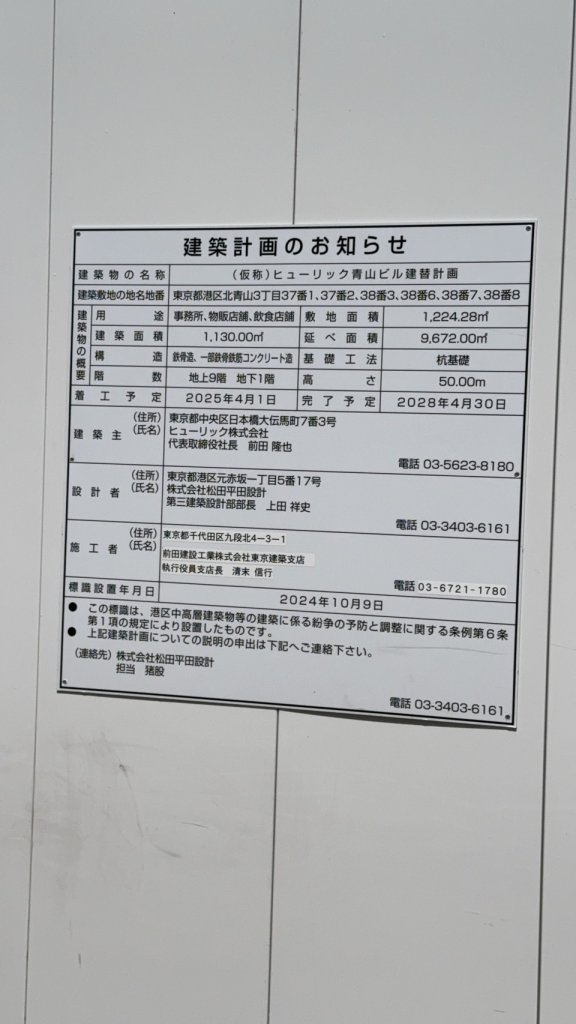 建築計画のお知らせ
建築物の名称 (仮称)ヒューリック青山ビル建替計画
建築敷地の地名地番 東京都港区北青山3丁目37番1、37番2、38番3、38番6、38番7、38番8
建築物の概要
用途 事務所、物販店舗、飲食店舗 敷地面積 1,224.28㎡
建築面積 1,130.00㎡ 延べ面積 9,672.00㎡
構造 鉄骨造、一部鉄骨鉄筋コンクリート造 基礎工法 杭基礎
階数 地上9階 地下1階 高さ 50.00m
着工予定 2025年4月1日 完了予定 2028年4月30日
建築主 (住所) 東京都中央区日本橋大伝馬町7番3号
(氏名) ヒューリック株式会社
代表取締役社長 前田 隆也
電話 03-5623-8180
設計者 (住所) 東京都港区元赤坂一丁目5番17号
(氏名) 株式会社松田平田設計
第三建築設計部部長 上田 祥史
電話 03-3403-6161
施工者 (住所) 東京都千代田区九段北4-3-1
(氏名) 前田建設工業株式会社東京建築支店
執行役員支店長 清末 信行
電話 03-6721-1780
標識設置年月日 2024年10月9日
● この標識は、港区中高層建築物等の建築に係る紛争の予防と調整に関する条例第6条
第1項の規定により設置したものです。
● 上記建築計画についての説明の申出は下記へご連絡下さい。
(連絡先) 株式会社松田平田設計
担当 猪股
電話 03-3403-6161